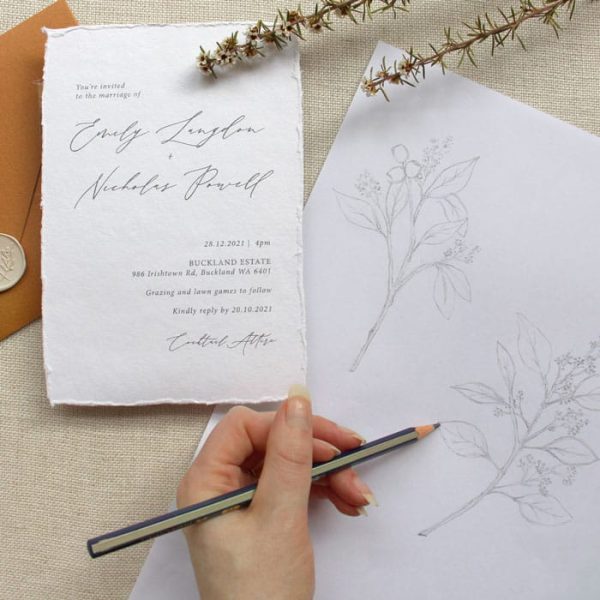 You're invited
to the marriage of
Emily Langdon
+
Nicholas Powell
28.12.2021 | 4pm
BUCKLAND ESTATE
986 Irishtown Rd, Buckland WA 6401
Grazing and lawn games to follow
Kindly reply by 20.10.2021
Cocktail Attire